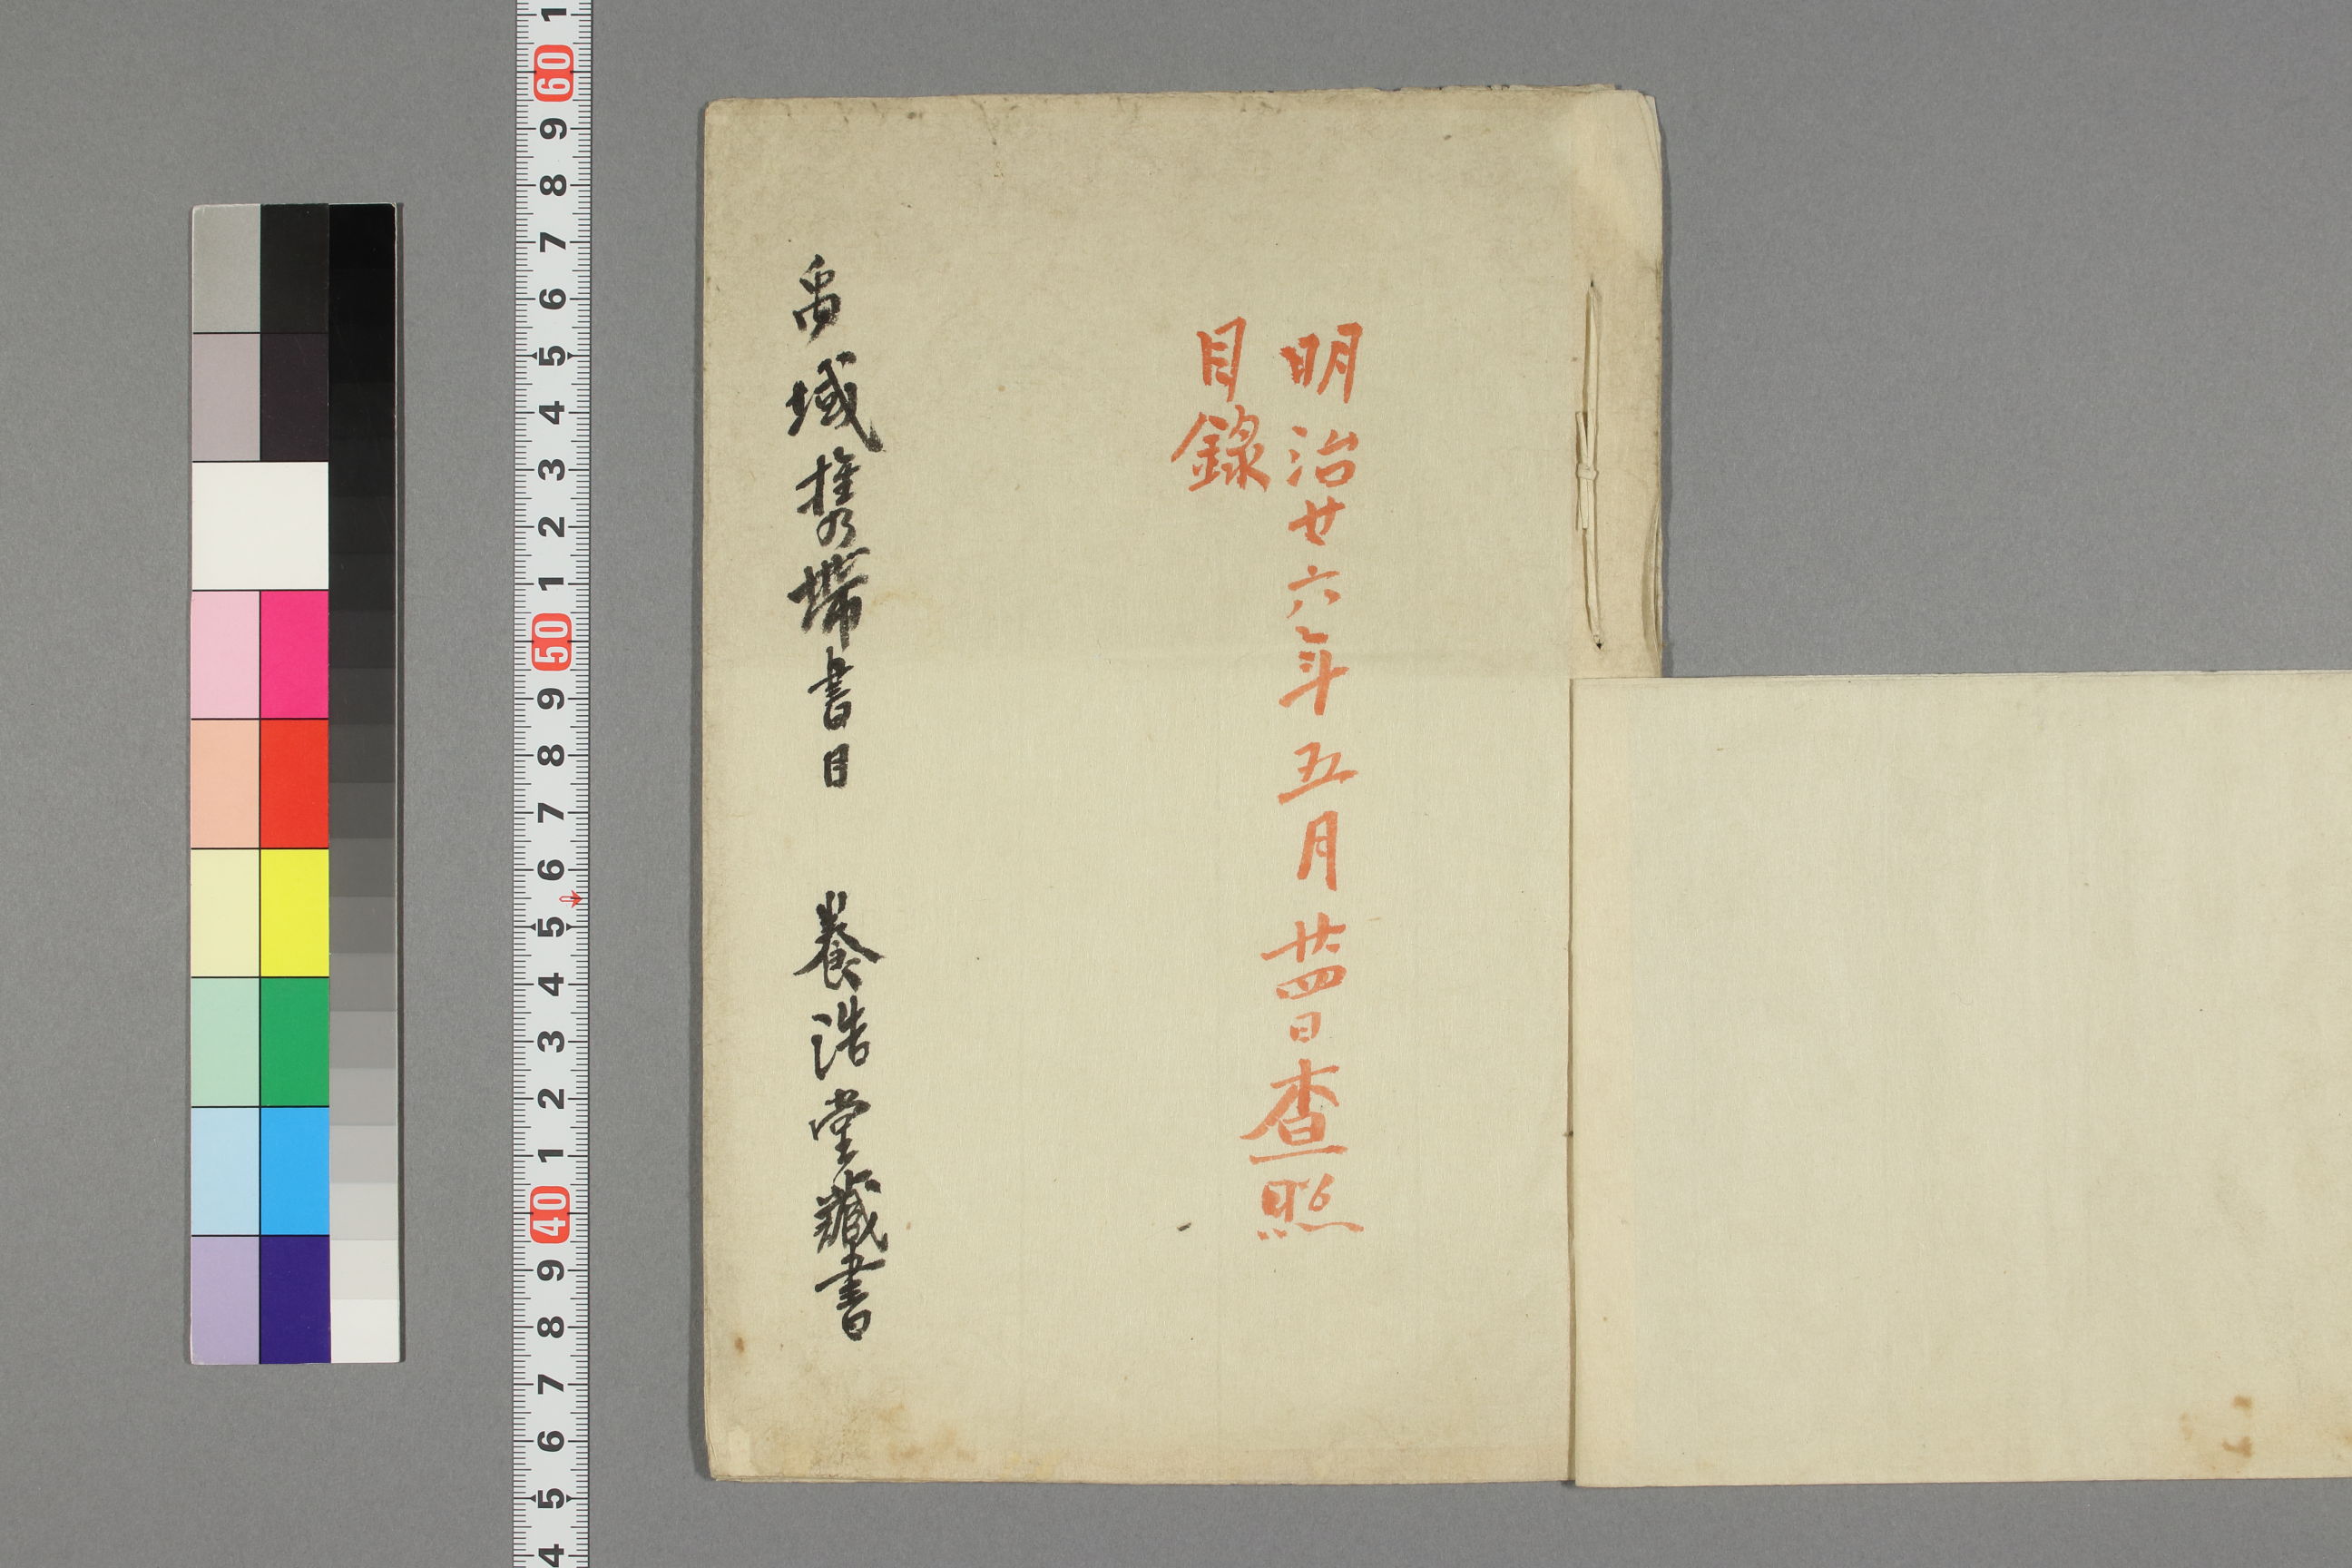 明治廿六年五月廿四日査照
目錄
禹域携帶書目　養浩堂藏書
1
60
9
8
7
6
5
4
3
2
1
50
9
8
7
6
5
4
3
2
1
40
9
8
7
6
5
4